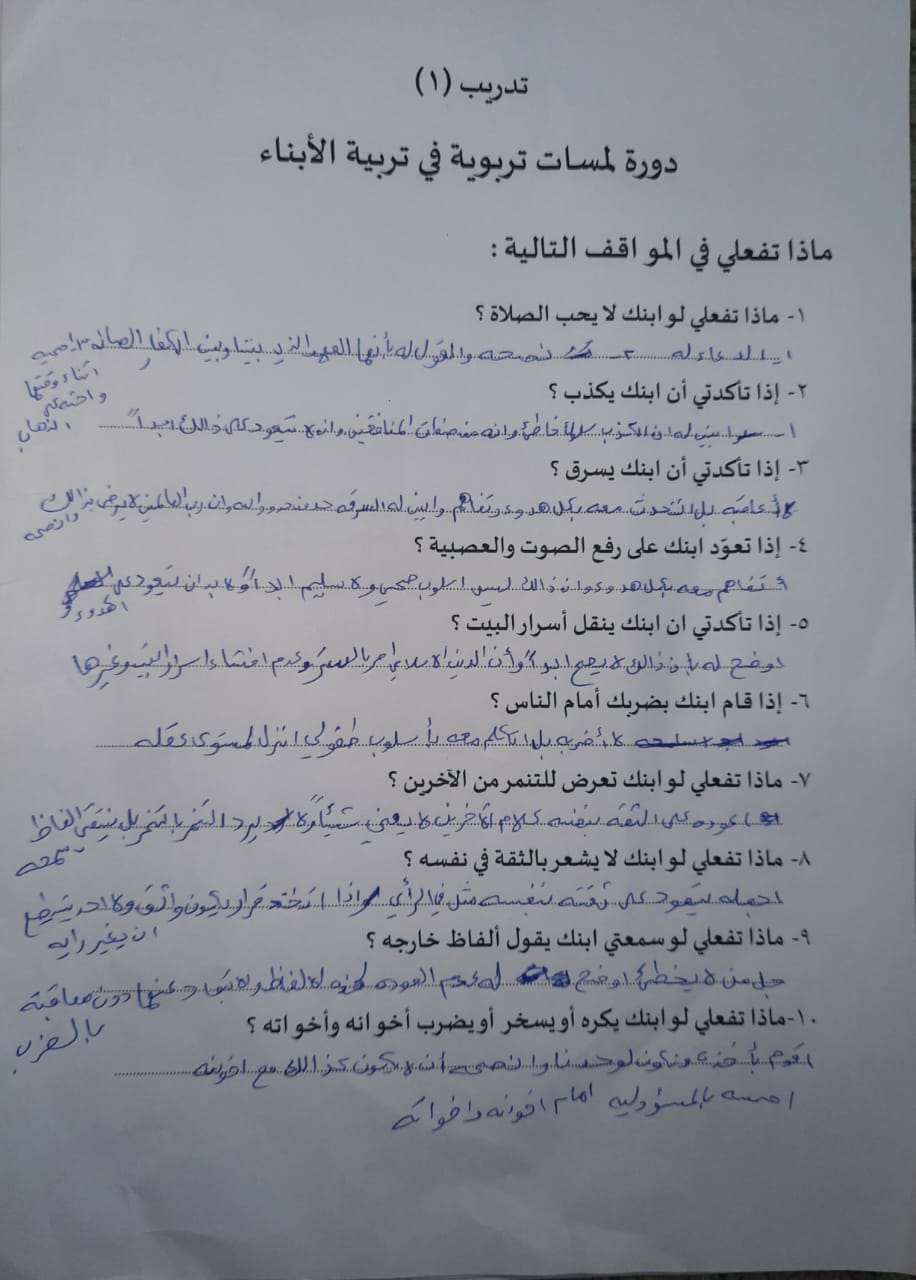 تدريب (١)
دورة لمسات تربوية في تربية الأبناء
ماذا تفعلي في المواقف التالية :
١- ماذا تفعلي لو ابنك لا يحب الصلاة ؟
١- الدعاء له ٢- نصحه والقول له بأنها العهد الذي بيننا وبين الكفار الصلاه ٣-
اثناء وقتها
واحثه على
الذهاب
٢- إذا تأكدتي أن ابنك يكذب ؟
١- ابين له ان الكذب خاطئ وانه من صفات المنافقين وان لا يتعود على ذالك ابداً
٣- إذا تأكدتي أن ابنك يسرق ؟
لا أعاقبه بل اتحدث معه بكل هدوء وتفاهم وابين له السرقه وان رب العالمين لا يرضى بذالك
وانصحه
٤- إذا تعوّد ابنك على رفع الصوت والعصبية ؟
أتفاهم معه بكل هدوء وان ذالك ليس اسلوب صحي ولا سليم ابداً لابد ان يتعود على
الهدوء
٥- إذا تأكدتي ان ابنك ينقل أسرار البيت ؟
اوضح له بان ذالك لا يصح ابداً وأن الدين الاسلامي امر بالستر وعدم افشاء اسرار البيت وغيرها
٦- إذا قام ابنك بضربك أمام الناس ؟
لا أضربه بل اتكلم معه بأسلوب طفولي انزل لمستوى عقله
٧- ماذا تفعلي لو ابنك تعرض للتنمر من الآخرين ؟
اعوده على الثقة بنفسه كلام الآخرين لا يعني شيئاً لا يرد التنمر بالتنمر بل ينتقي الفاظ
٨- ماذا تفعلي لو ابنك لا يشعر بالثقة في نفسه ؟
اجعله يتعود على ثقته بنفسه مثل في الرأي اذا اتخذ قرار يكون واثق ولا احد يستطيع
ان يغير رايه
٩- ماذا تفعلي لو سمعتي ابنك يقول ألفاظ خارجه ؟
جل من لا يخطئ اوضح له عدم العوده لهذه الالفاظ والابتعاد عنها دون معاقبة
بالضرب
١٠-ماذا تفعلي لو ابنك يكره أو يسخر أو يضرب أخوانه وأخواته ؟
اقوم بأخذه ونكون لوحدنا وانصحه أن لا يكون كذالك مع اخوته
احسسه بالمسؤوليه امام اخوانه واخواته